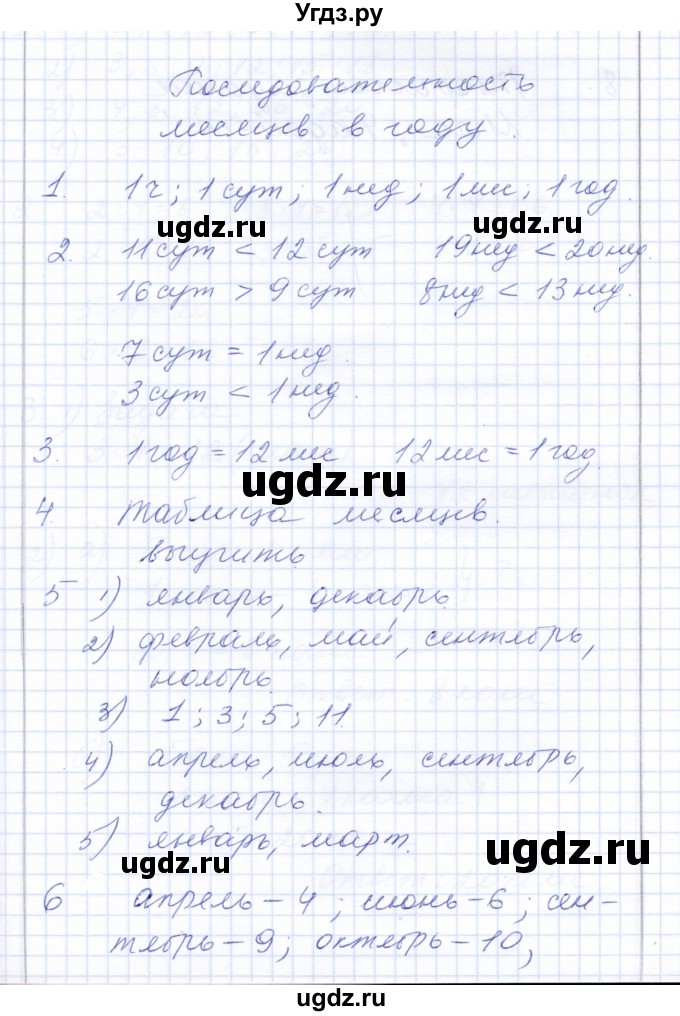 Угдз.ру
Последовательность
месяцев в году.
1. 1ч; 1сут; 1нед; 1мес; 1год.
ugdz.ru ugdz.ru
2. 11сут < 12сут 19нед < 20нед.
16сут > 9сут 8нед < 13нед.
7сут = 1нед.
3сут < 1нед.
3. 1год = 12мес 12мес = 1год.
ugdz.ru
4. таблица месяцев.
выучить
5 1) январь, декабрь.
2) февраль, май, сентябрь,
ноябрь.
3) 1; 3; 5; 11.
4) апрель, июль, сентябрь,
декабрь.
5) январь, март.
ugdz.ru ugdz.ru
6 апрель – 4; июнь – 6; сен-
тябрь – 9; октябрь – 10,
ugdz.ru